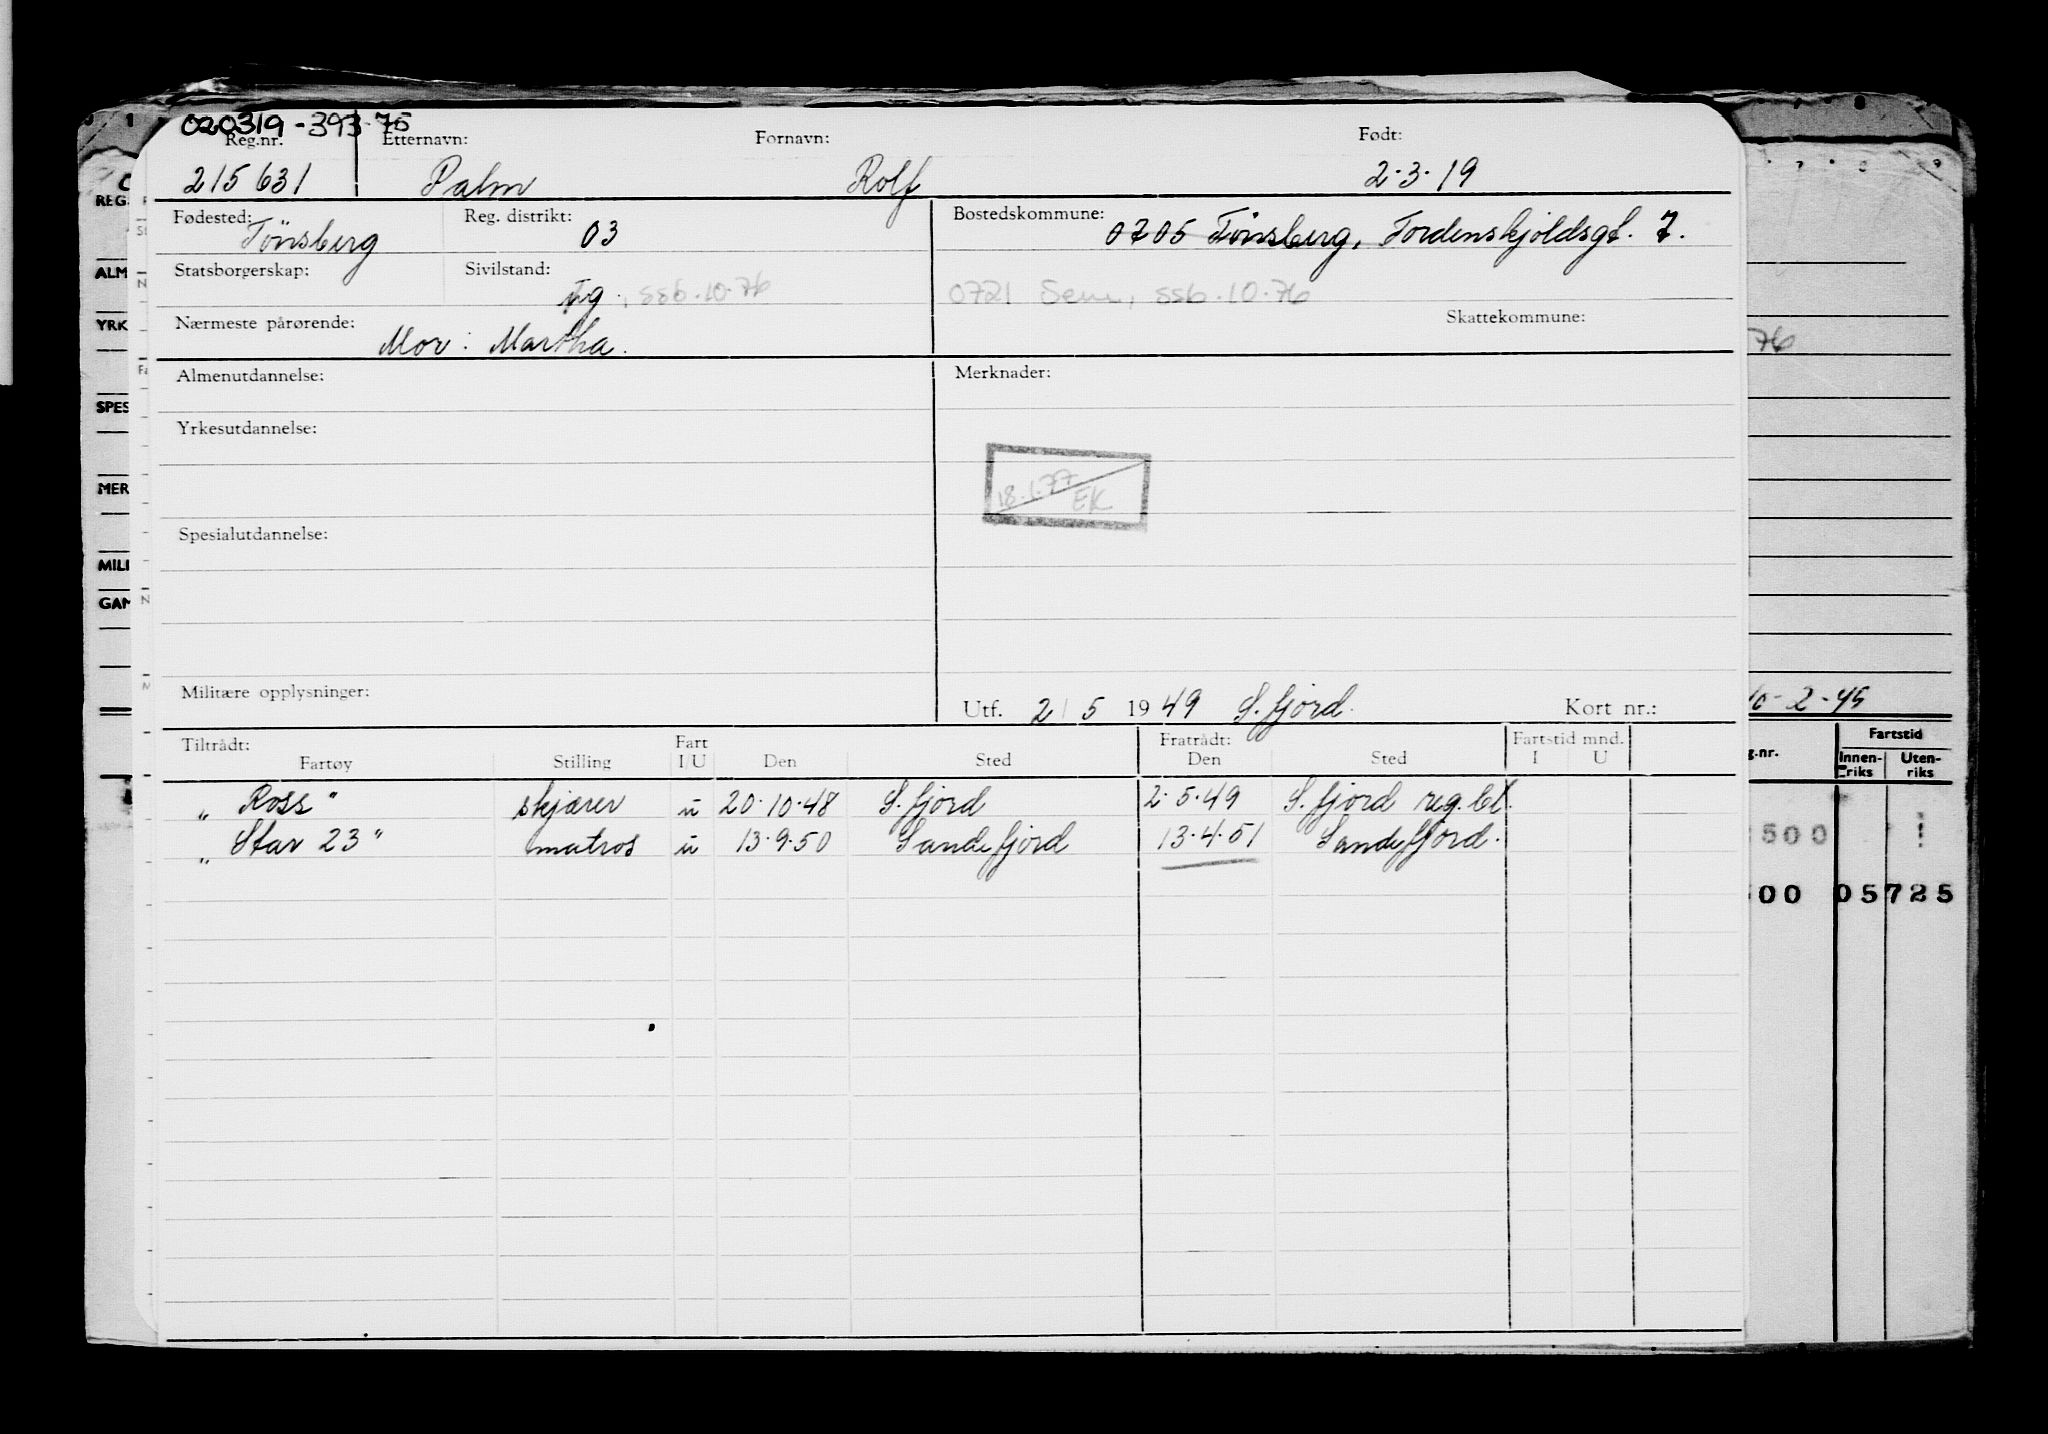 020319-393 75
Reg.nr. Etternavn: Fornavn: Født:
215631 Palm Rolf 2.3.19
Fødested: Tönsberg Reg. distrikt: 03 Bostedskommune: 0705 Tönsberg, Tordenskjoldsgt. 7.
Statsborgerskap: Sivilstand: ug., SSB.10.76 0721 Sem, SSB.10.76
Nærmeste pårørende: Mor: Martha. Skattekommune:
76
Almenutdannelse: Merknader:
Yrkesutdannelse:
18.1.77 EK
Spesialutdannelse:
Militære opplysninger: Utf. 2/5 1949 S.fjord. Kort nr.:
10-2-45
Tiltrådt: Fart Fratrådt: Fartstid mnd.
Fartøy Stilling I/U Den Sted Den Sted I U
"Ross" skjærer u 20.10.48 S.fjord 2.5.49 S.fjord reg.bl.
"Star 23" matros u 13.9.50 Sandefjord 13.4.51 Sandefjord.
REG.
ALM
YRK
SPES
MER
MILI
GAM
g.nr. Fartstid
Innen-riks Uten-riks
500 !
00 05725